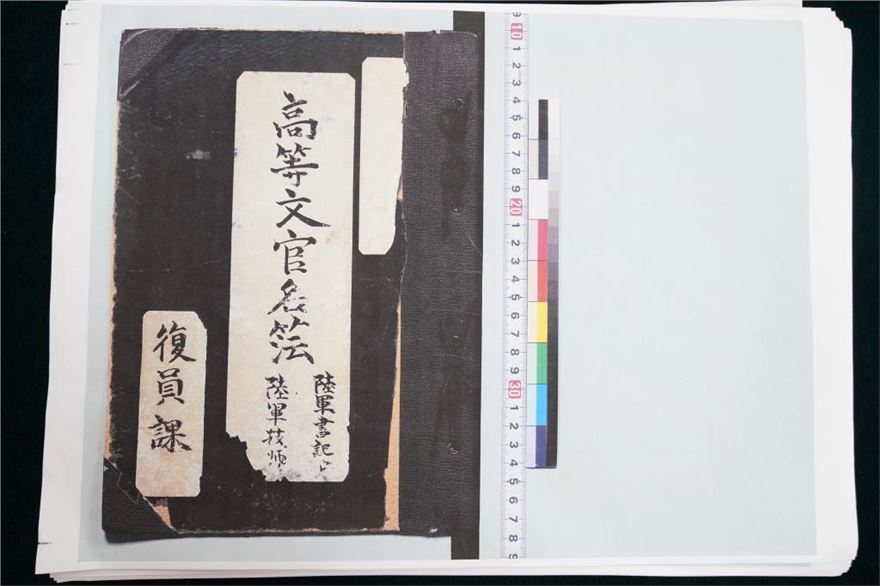 高等文官名簿
陸軍書記
陸軍技師
復員課
9 10 1 2 3 4 5 6 7 8 9 20 1 2 3 4 5 6 7 8 9 30 1 2 3 4 5 6 7 8 9